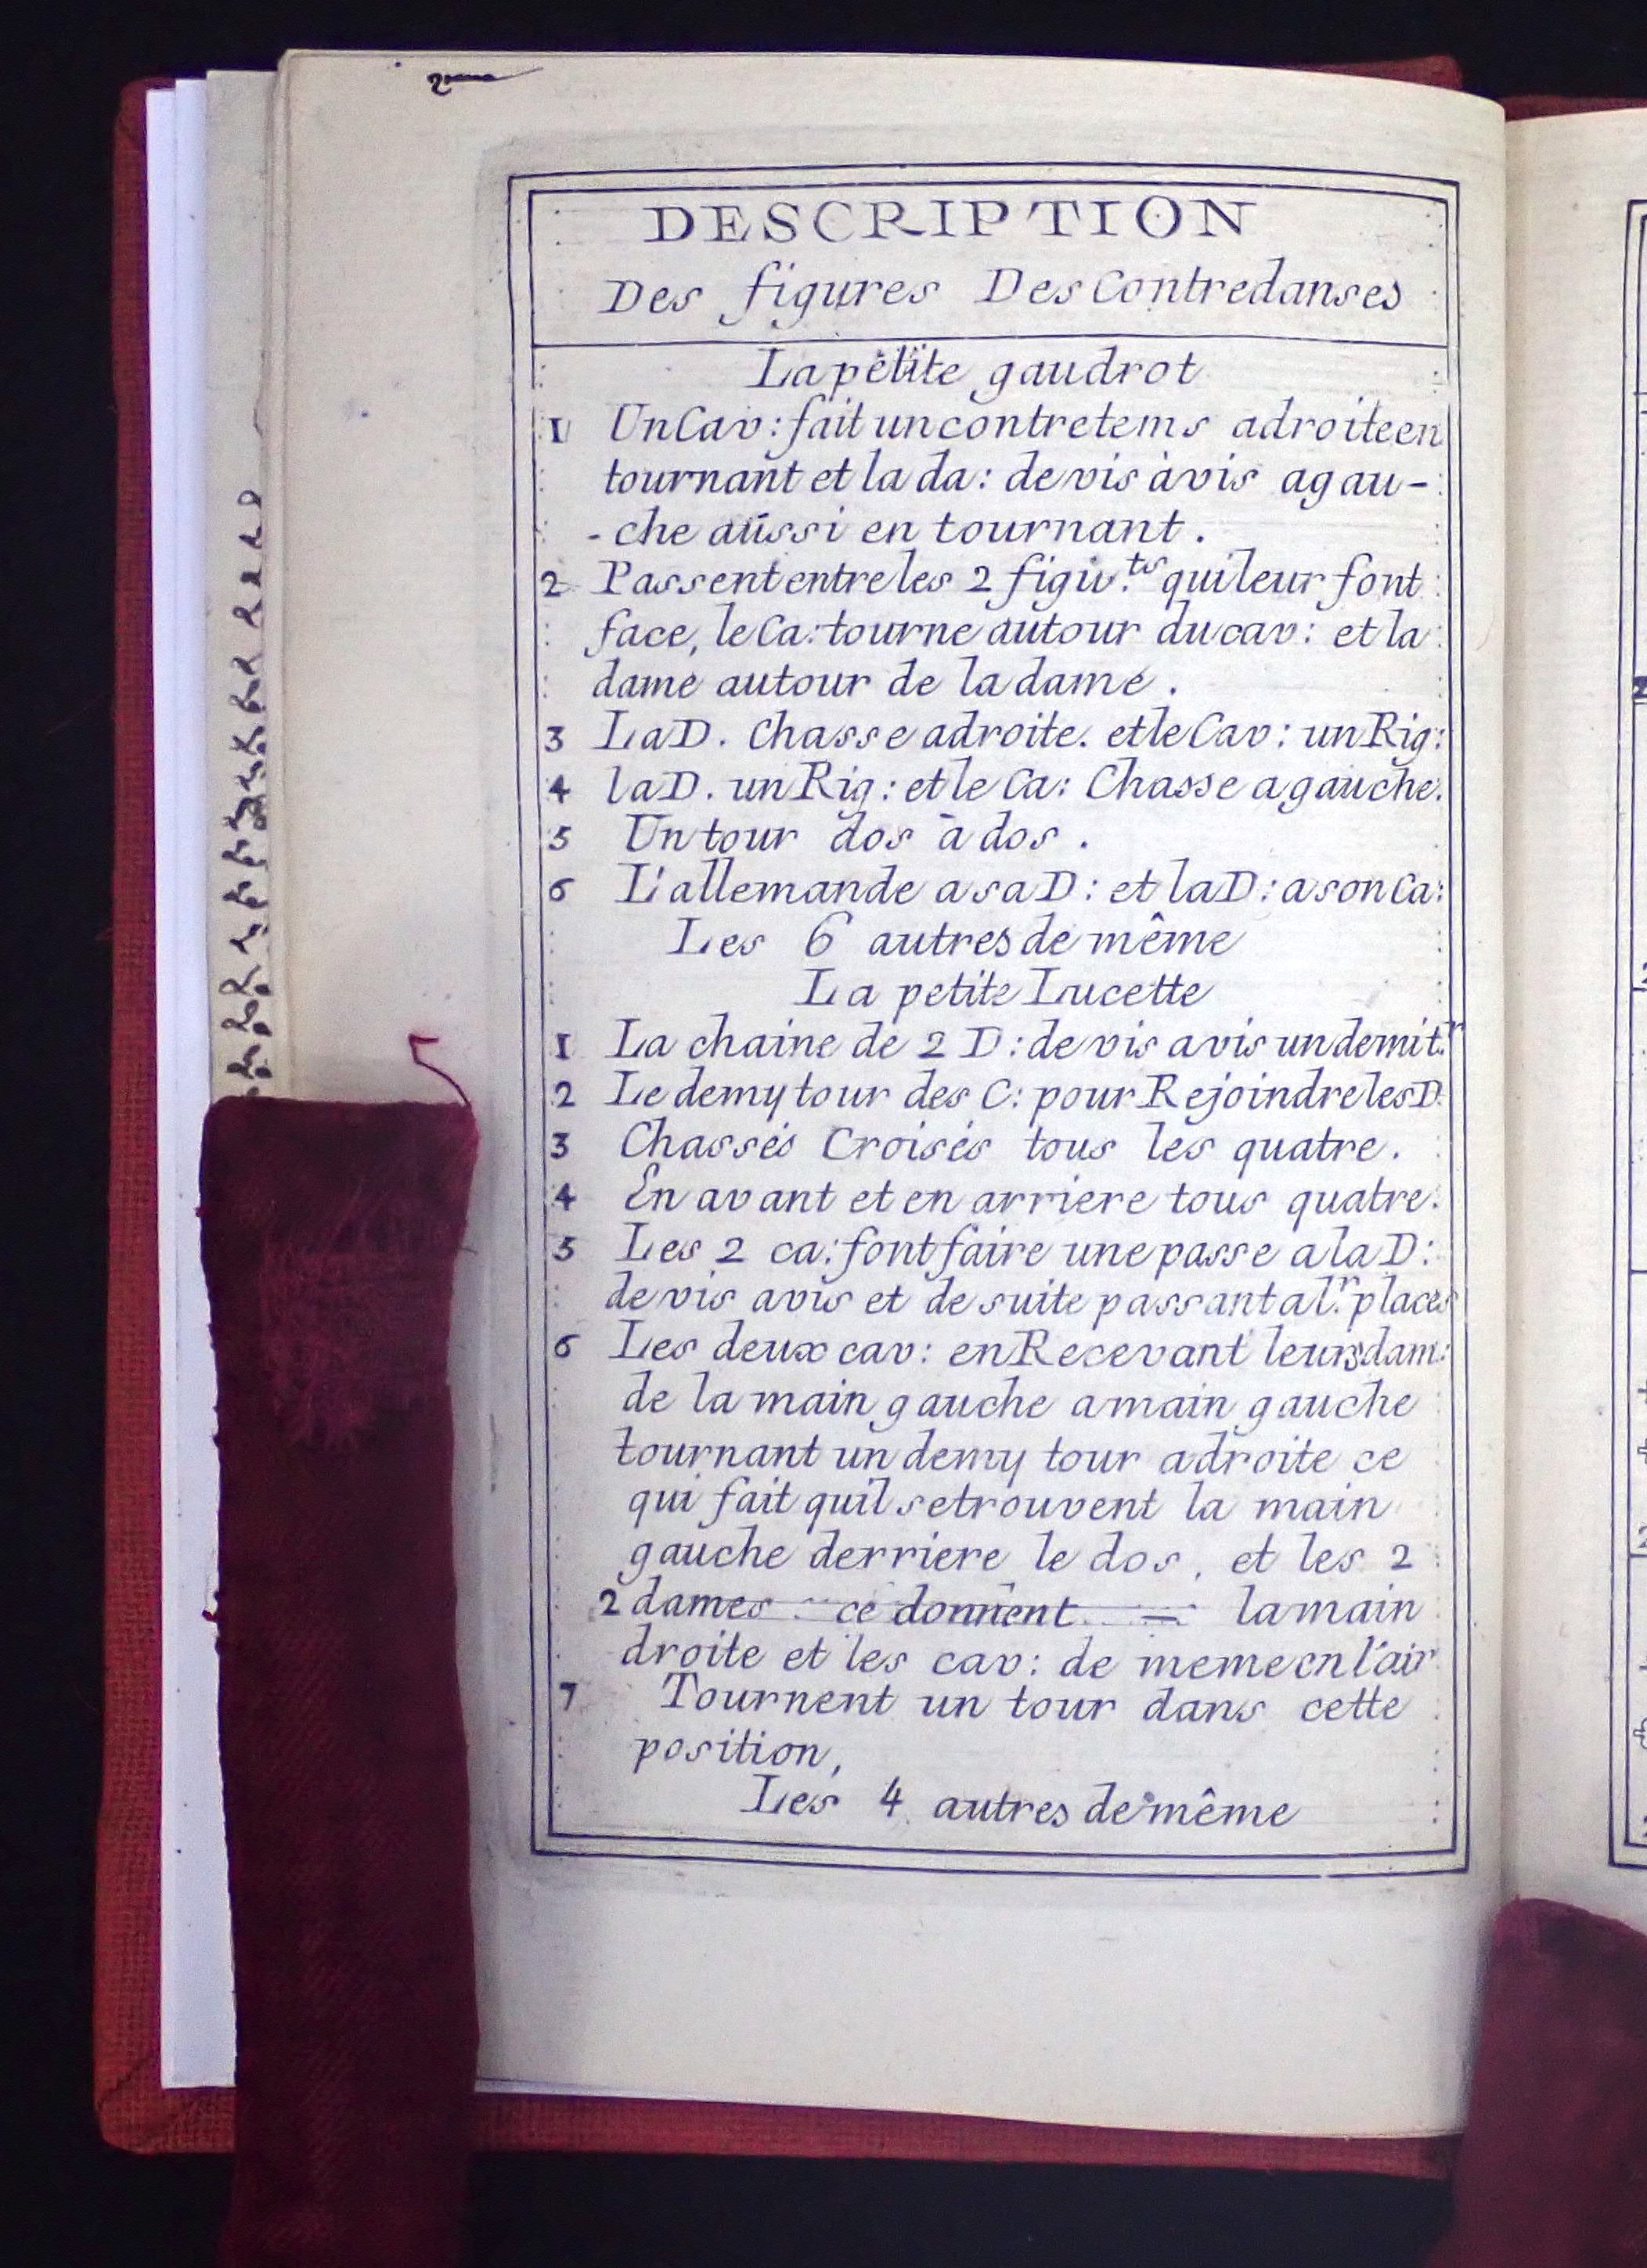 2
DESCRIPTION
Des figures Des Contredanses
La petite gaudrot
1 Un Cav: fait un contretems a droite en
tournant et la da: de vis à vis a gau-
-che aussi en tournant.
2 Passent entre les 2 figu.ts qui leur font
face, le Ca: tourne autour du cav: et la
dame autour de la dame.
3 La D. Chasse a droite. et le Cav: un Rig:
4 la D. un Rig: et le Ca: Chasse a gauche.
5 Un tour dos à dos.
6 L'allemande a sa D: et la D: a son Ca:
Les 6 autres de même
La petite Lucette
1 La chaine de 2 D: de vis a vis un demi t.r
2 Le demy tour des C: pour Rejoindre les D.
3 Chassés Croisés tous les quatre.
4 En avant et en arriere tous quatre.
5 Les 2 ca: font faire une passe a la D:
de vis a vis et de suite passant a l.r places
6 Les deux cav: en Recevant leurs dam:
de la main gauche a main gauche
tournant un demy tour a droite ce
qui fait quil se trouvent la main
gauche derriere le dos, et les 2
2 dames ce donnent la main
droite et les cav: de meme en l'air
7 Tournent un tour dans cette
position,
Les 4 autres de même